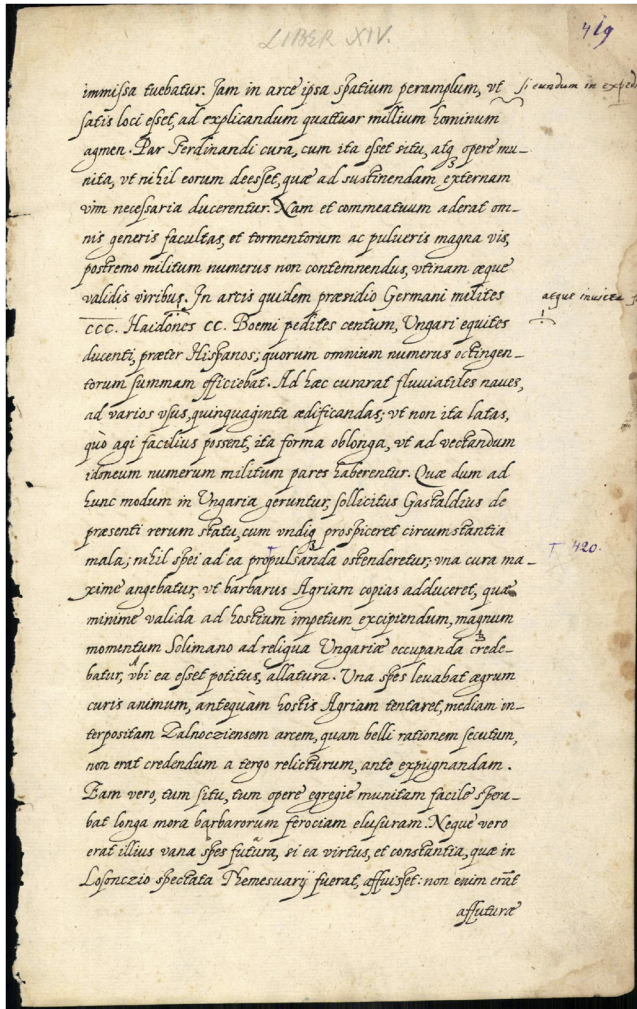 LIBER XIV.
419
immissa tuebatur. Jam in arce ipsa spatium peramplum, vt
si eundum in exped
satis loci esset, ad explicandum quattuor millium hominum
agmen. Par Ferdinandi cura, cum ita esset situ, atq opere mu-
nita, vt nihil eorum deesset, quæ ad sustinendam externam
vim necessaria ducerentur. Nam et commeatuum aderat om-
nis generis facultas, et tormentorum ac pulueris magna vis,
postremo militum numerus non contemnendus, vtinam æque
validis viribus. In arcis quidem præsidio Germani milites
atque inuicta
CCC. Haidones CC. Boemi pedites centum, Ungari equites
ducenti, præter Hispanos; quorum omnium numerus octingen-
torum summam efficiebat. Ad hæc curarat fluuiatiles naues,
ad varios vsus, quinquaginta ædificandas; vt non ita latas,
quò agi facilius possent, ita forma oblonga, vt ad vectandum
idoneum numerum militum pares haberentur. Quæ dum ad
hunc modum in Ungaria geruntur, sollicitus Gastaldius de
præsenti rerum statu, cum vndiq prospiceret circumstantia
mala; nihil spei ad ea propulsanda ostenderetur; vna cura ma-
T 420.
xime angebatur, vt barbarus Agriam copias adduceret, quæ
minime valida ad hostium impetum excipiendum, magnum
momentum Solimano ad reliqua Ungariæ occupanda crede-
batur, vbi ea esset potitus, allatura. Una spes leuabat ægrum
curis animum, antequàm hostis Agriam tentaret, mediam in-
terpositam Zalnocziensem arcem, quam belli rationem secutum,
non erat credendum a tergo relicturum, ante expugnandam.
Eam vero, tum situ, tum opere egregie munitam facile spera-
bat longa mora barbarorum ferociam elusuram. Neque vero
erat illius vana spes futura, si ea virtus, et constantia, quæ in
Losonczio spectata Themesuarÿ fuerat, affuisset: non enim erāt
affuturæ